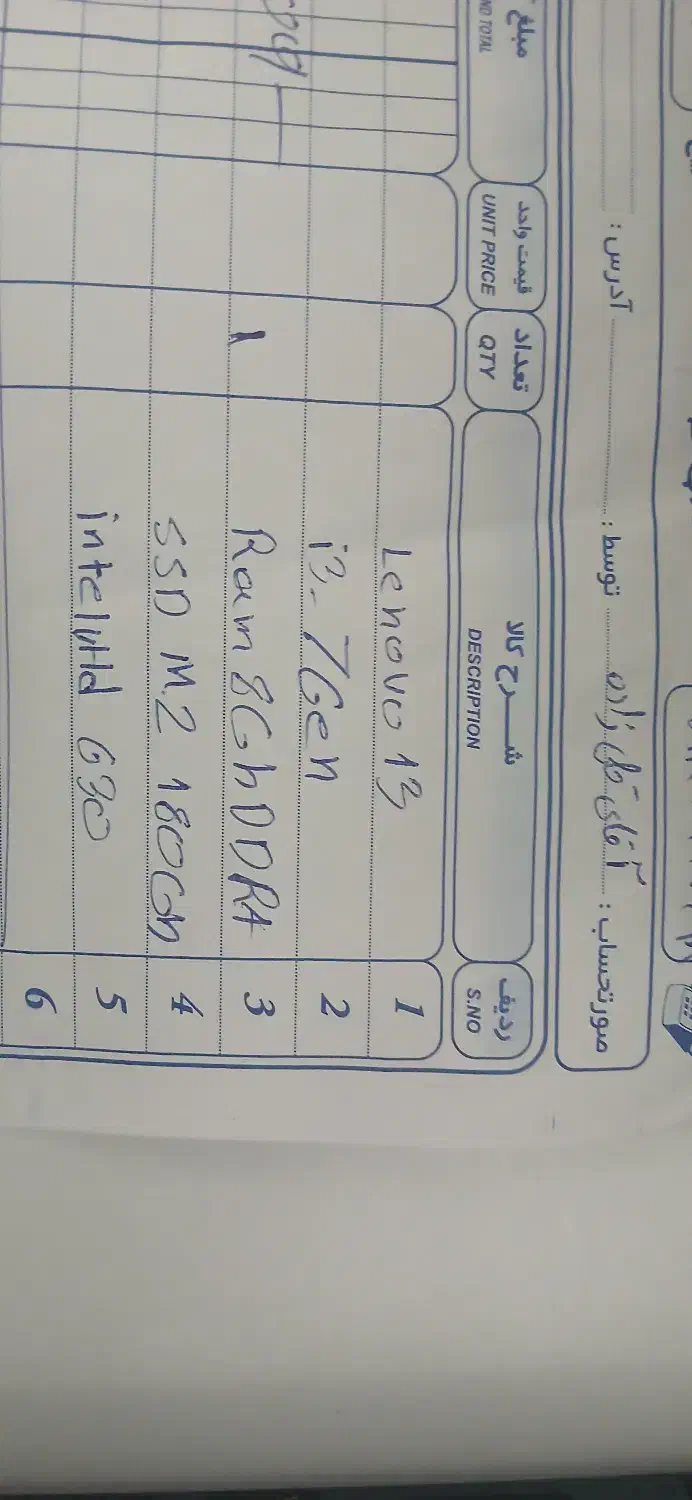 صورتحساب : آقای قلی زاده توسط : آدرس :
ردیف شرح کالا تعداد قیمت واحد مبلغ
S.NO DESCRIPTION QTY UNIT PRICE ND TOTAL
1 Lenovo 13
2 i3.7Gen
3 Ram 8Gb DDR4 1
4 SSD M.2 180Gb
5 intel HD 630
6